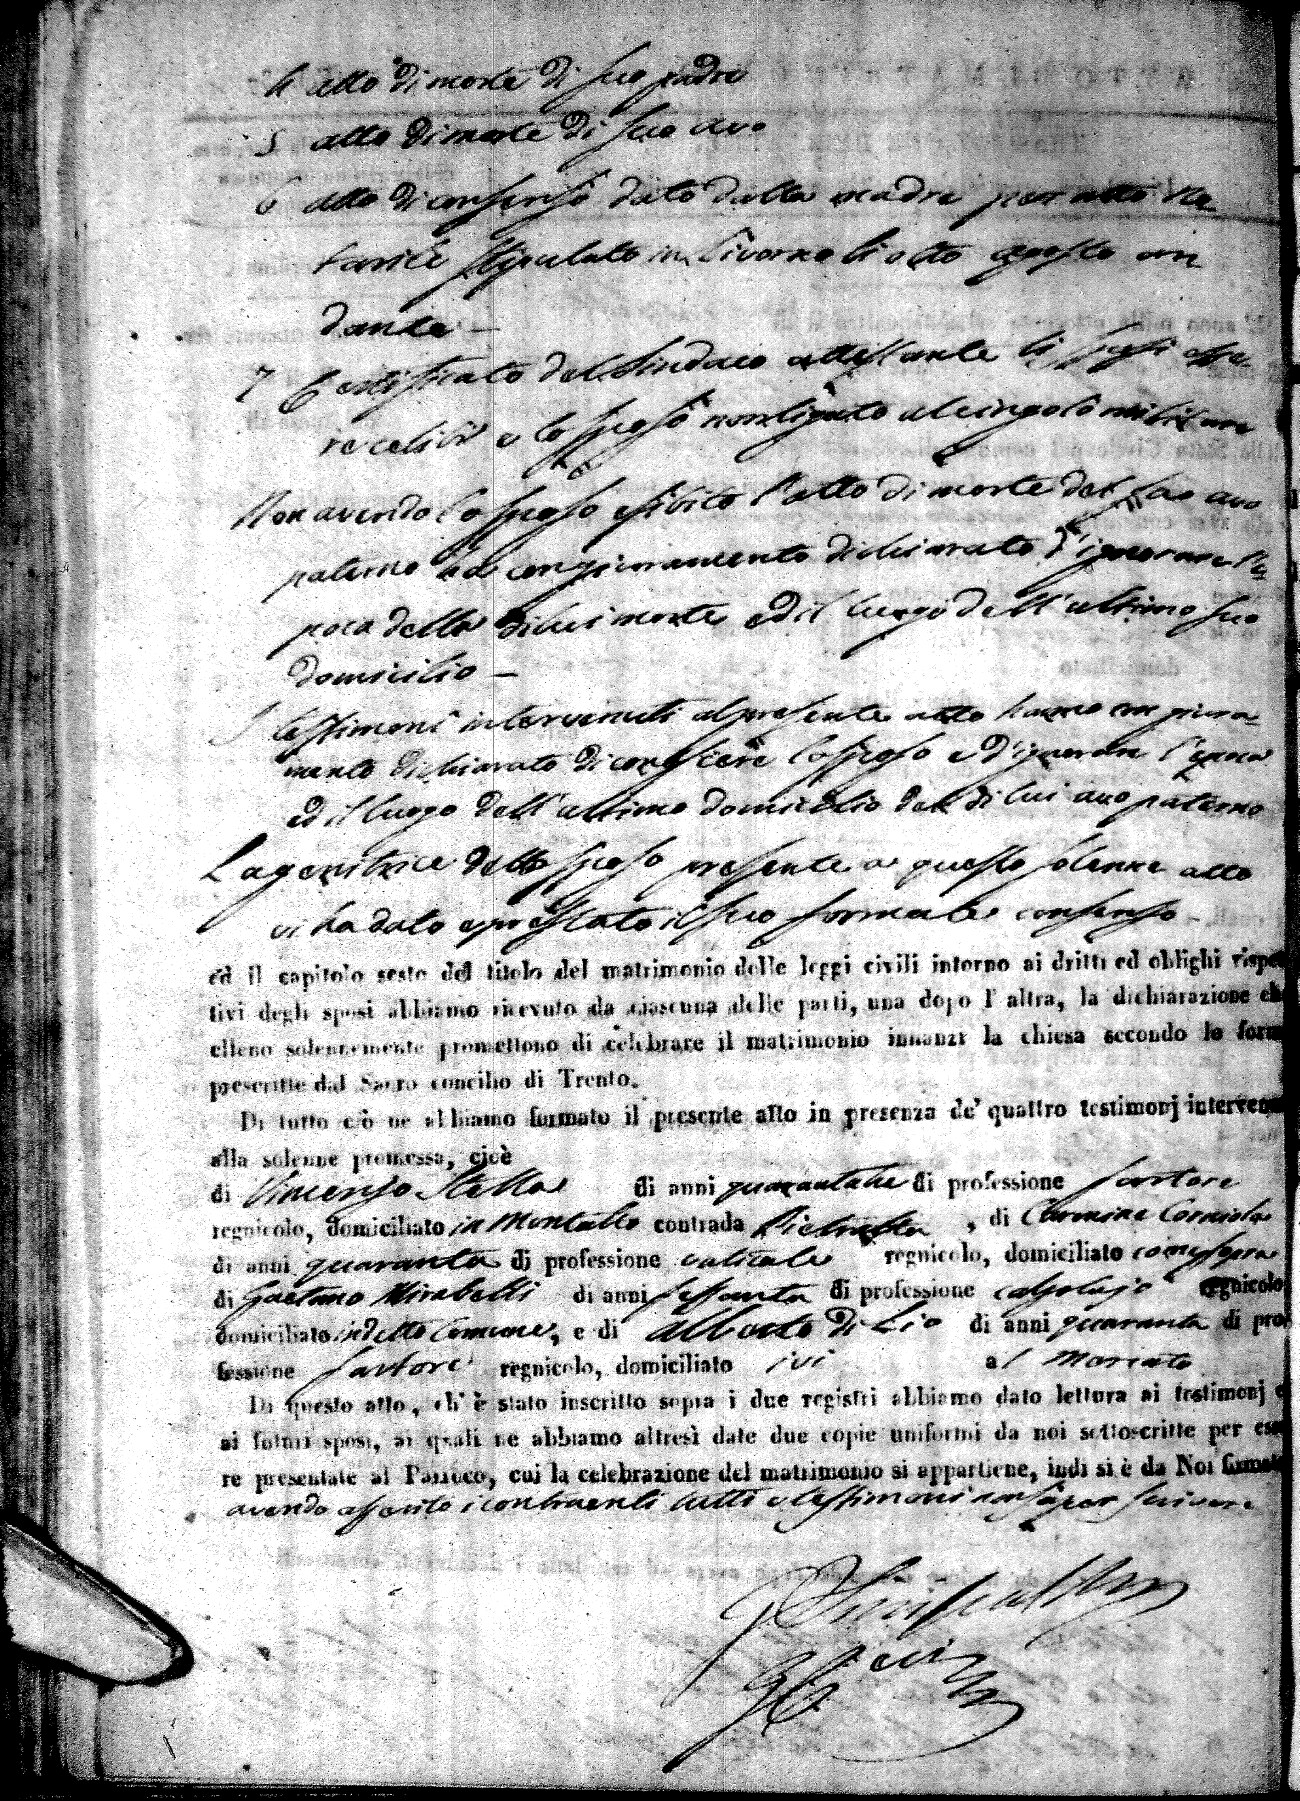 4 atto di morte di suo padre
5 atto di morte di suo avo
6 atto di consenso dato dalla madre per atto No-
tarile stipulato in Livorno li otto agosto an
dante —
7 Certificato del Sindaco attestante li sposi esse-
re celibi e lo sposo non ligato al cingolo militare
Non avendo lo sposo esibito l'atto di morte del suo avo
paterno ha con giuramento dichiarato d'ignorare l'e-
poca della di lui morte ed il luogo dell'ultimo suo
domicilio —
I testimoni intervenuti al presente atto hanno con giura-
mento dichiarato di conoscere lo sposo e d'ignorare l'epoca
ed il luogo dell'ultimo domicilio del di lui avo paterno
La genitrice dello sposo presente a questo solenne atto
vi ha dato e prestato il suo formale consenso
ed il capitolo sesto del titolo del matrimonio delle leggi civili intorno ai dritti ed oblighi rispet
tivi degli sposi abbiamo ricevuto da ciascuna delle parti, una dopo l' altra, la dichiarazione ch
elleno solennemente promettono di celebrare il matrimonio innanzi la chiesa secondo le form
prescritte dal Sacro concilio di Trento.
Di tutto ciò ne abbiamo formato il presente atto in presenza de' quattro testimonj intervenu
alla solenne promessa, cioè
di Vincenzo Stella di anni quarantatre di professione sartore
regnicolo, domiciliato in Montallo contrada , di Carmine
di anni quaranta di professione regnicolo, domiciliato come sopra
di Gaetano Mirabelli di anni sessanta di professione calzolajo regnicolo
domiciliato in detto Comune, e di Alberto di Lio di anni quaranta di pro
fessione sartore regnicolo, domiciliato ivi al Mercato
Di questo atto, ch' è stato inscritto sopra i due registri abbiamo dato lettura ai testimonj e
ai futuri sposi, ai quali ne abbiamo altresì date due copie uniformi da noi sottoscritte per esse
re presentate al Parroco, cui la celebrazione del matrimonio si appartiene, indi si è da Noi firmato
avendo asserito i contraenti tutti e testimoni non saper scrivere